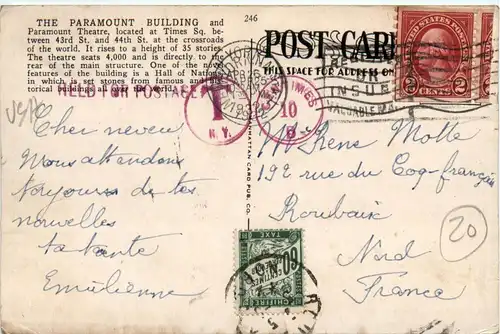 THE PARAMOUNT BUILDING and
Paramount Theatre, located at Times Sq. be-
tween 43rd St. and 44th St. at the crossroads
of the world. It rises to a height of 35 stories.
The theatre seats 4,000 and is directly to the
rear of the main structure. One of the novel
features of the building is a Hall of Nations
in which is set stones from famous and historical
buildings all over the world.
246
POST CARD
THIS SPACE FOR ADDRESS ONLY
UNITED STATES POSTAGE
2 CENTS 2
INSURE
VALUABLE
HELD FOR POSTAGE
T
N.Y.
CENTIMES
10
MANHATTAN CARD PUB. CO.
USPO
Cher neveu
Nous attendons
toujours de tes
nouvelles
ta tante
Emilienne
Mr Rene Motte
192 rue du Coq français
Roubaix
Nord
France
20
60
CENTIMES
A PERCEVOIR
CHIFFRE
TAXE